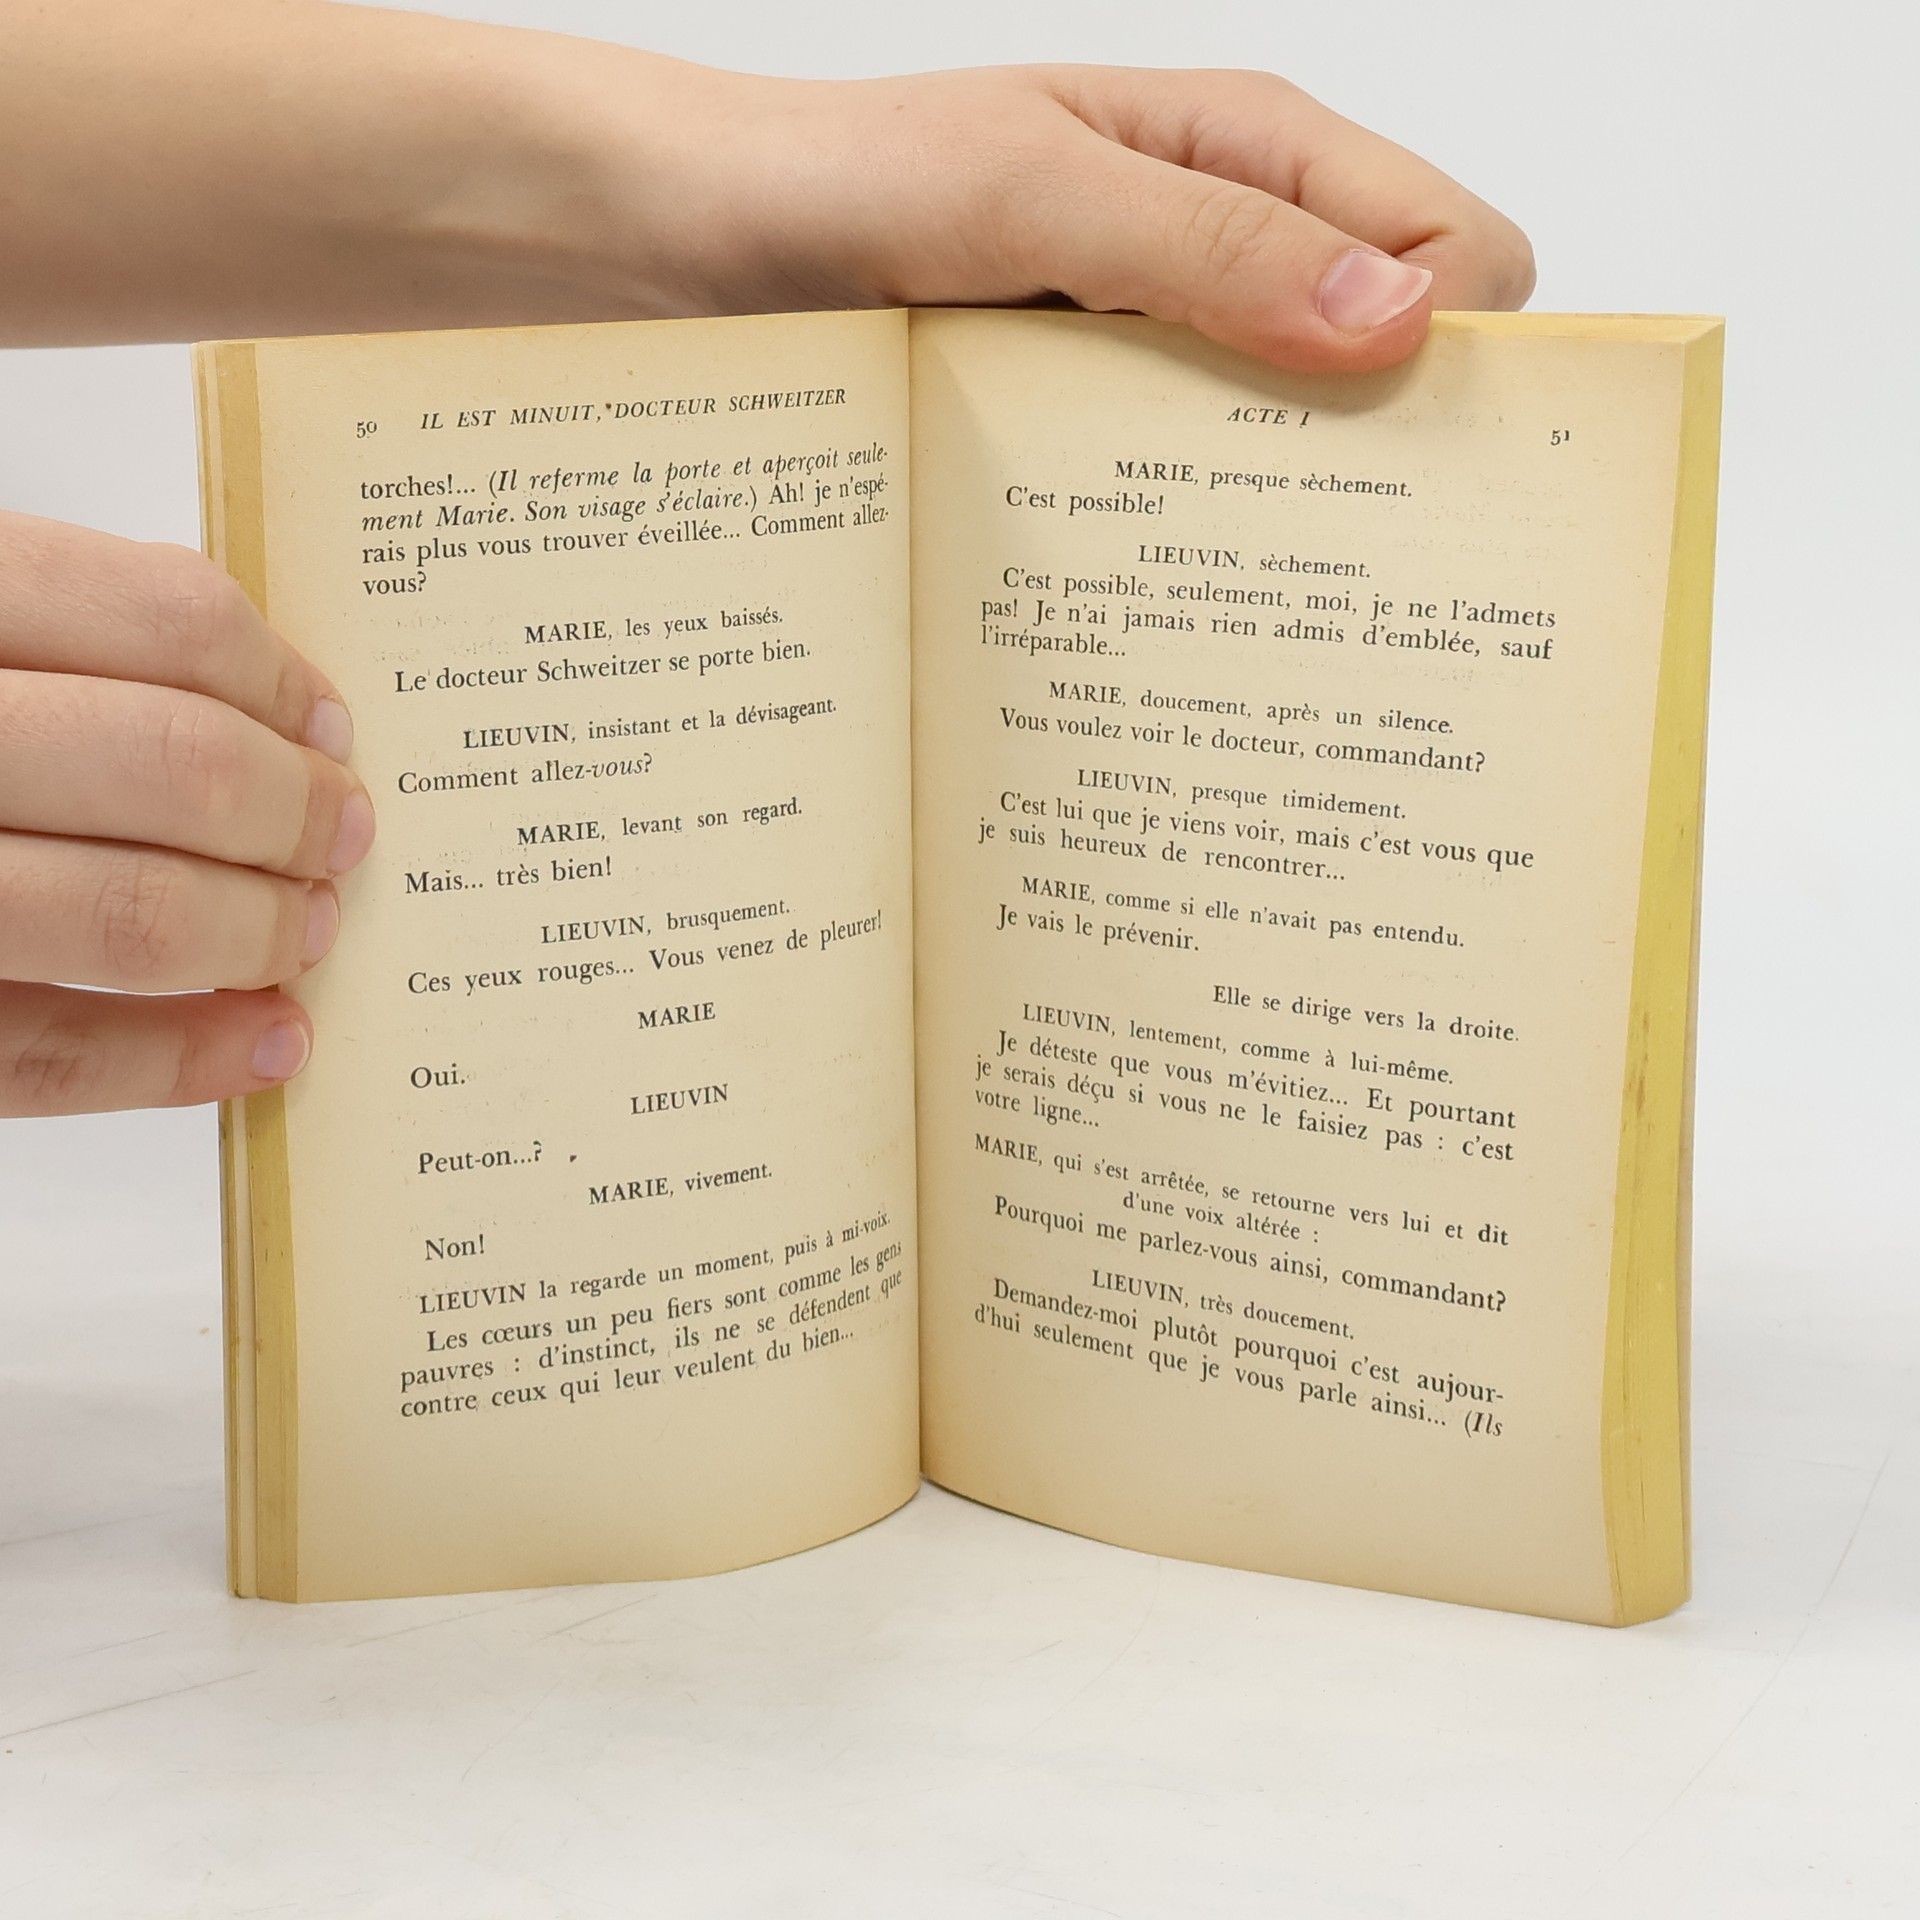 50 IL EST MINUIT, DOCTEUR SCHWEITZER
torches!... (Il referme la porte et aperçoit seule-
ment Marie. Son visage s'éclaire.) Ah! je n'espé-
rais plus vous trouver éveillée... Comment allez-
vous?
MARIE, les yeux baissés.
Le docteur Schweitzer se porte bien.
LIEUVIN, insistant et la dévisageant.
Comment allez-vous?
MARIE, levant son regard.
Mais... très bien!
LIEUVIN, brusquement.
Ces yeux rouges... Vous venez de pleurer!
MARIE
Oui.
LIEUVIN
Peut-on...?
MARIE, vivement.
Non!
LIEUVIN la regarde un moment, puis à mi-voix.
Les cœurs un peu fiers sont comme les gens
pauvres : d'instinct, ils ne se défendent que
contre ceux qui leur veulent du bien...
ACTE I
51
MARIE, presque sèchement.
C'est possible!
LIEUVIN, sèchement.
C'est possible, seulement, moi, je ne l'admets
pas! Je n'ai jamais rien admis d'emblée, sauf
l'irréparable...
MARIE, doucement, après un silence.
Vous voulez voir le docteur, commandant?
LIEUVIN, presque timidement.
C'est lui que je viens voir, mais c'est vous que
je suis heureux de rencontrer...
MARIE, comme si elle n'avait pas entendu.
Je vais le prévenir.
Elle se dirige vers la droite.
LIEUVIN, lentement, comme à lui-même.
Je déteste que vous m'évitiez... Et pourtant
je serais déçu si vous ne le faisiez pas : c'est
votre ligne...
MARIE, qui s'est arrêtée, se retourne vers lui et dit
d'une voix altérée :
Pourquoi me parlez-vous ainsi, commandant?
LIEUVIN, très doucement.
Demandez-moi plutôt pourquoi c'est aujour-
d'hui seulement que je vous parle ainsi... (Ils